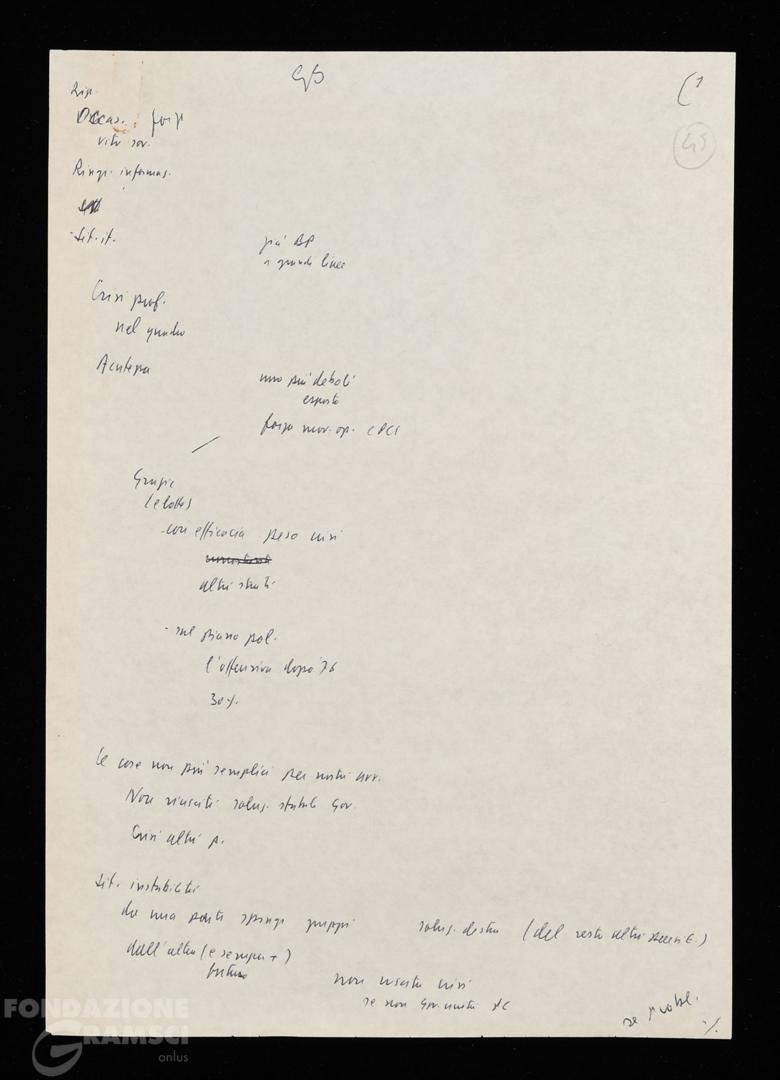 GB
C1
45
Rin.
Occas.
vita sov.
Ringr. informaz.
- Sit. it.
già BP
a grandi linee
Crisi prof.
nel quadro
Acutezza
uno più deboli
esposto
forza mov. op. e PCI
Grazie
le lotte
- con efficacia peso crisi
altri strati
- sul piano pol.
l'offensiva dopo '76
30%
Le cose non più semplici per nostri avv.
Non riusciti soluz. stabile Gov.
Crisi altri p.
Sit. instabilità
da una parte spinge gruppi soluz. destra (del resto altri paesi E.)
dall'altra (e sempre +)
non uscita crisi
se non Gov. unità
probl.
./.
FONDAZIONE
GRAMSCI
onlus